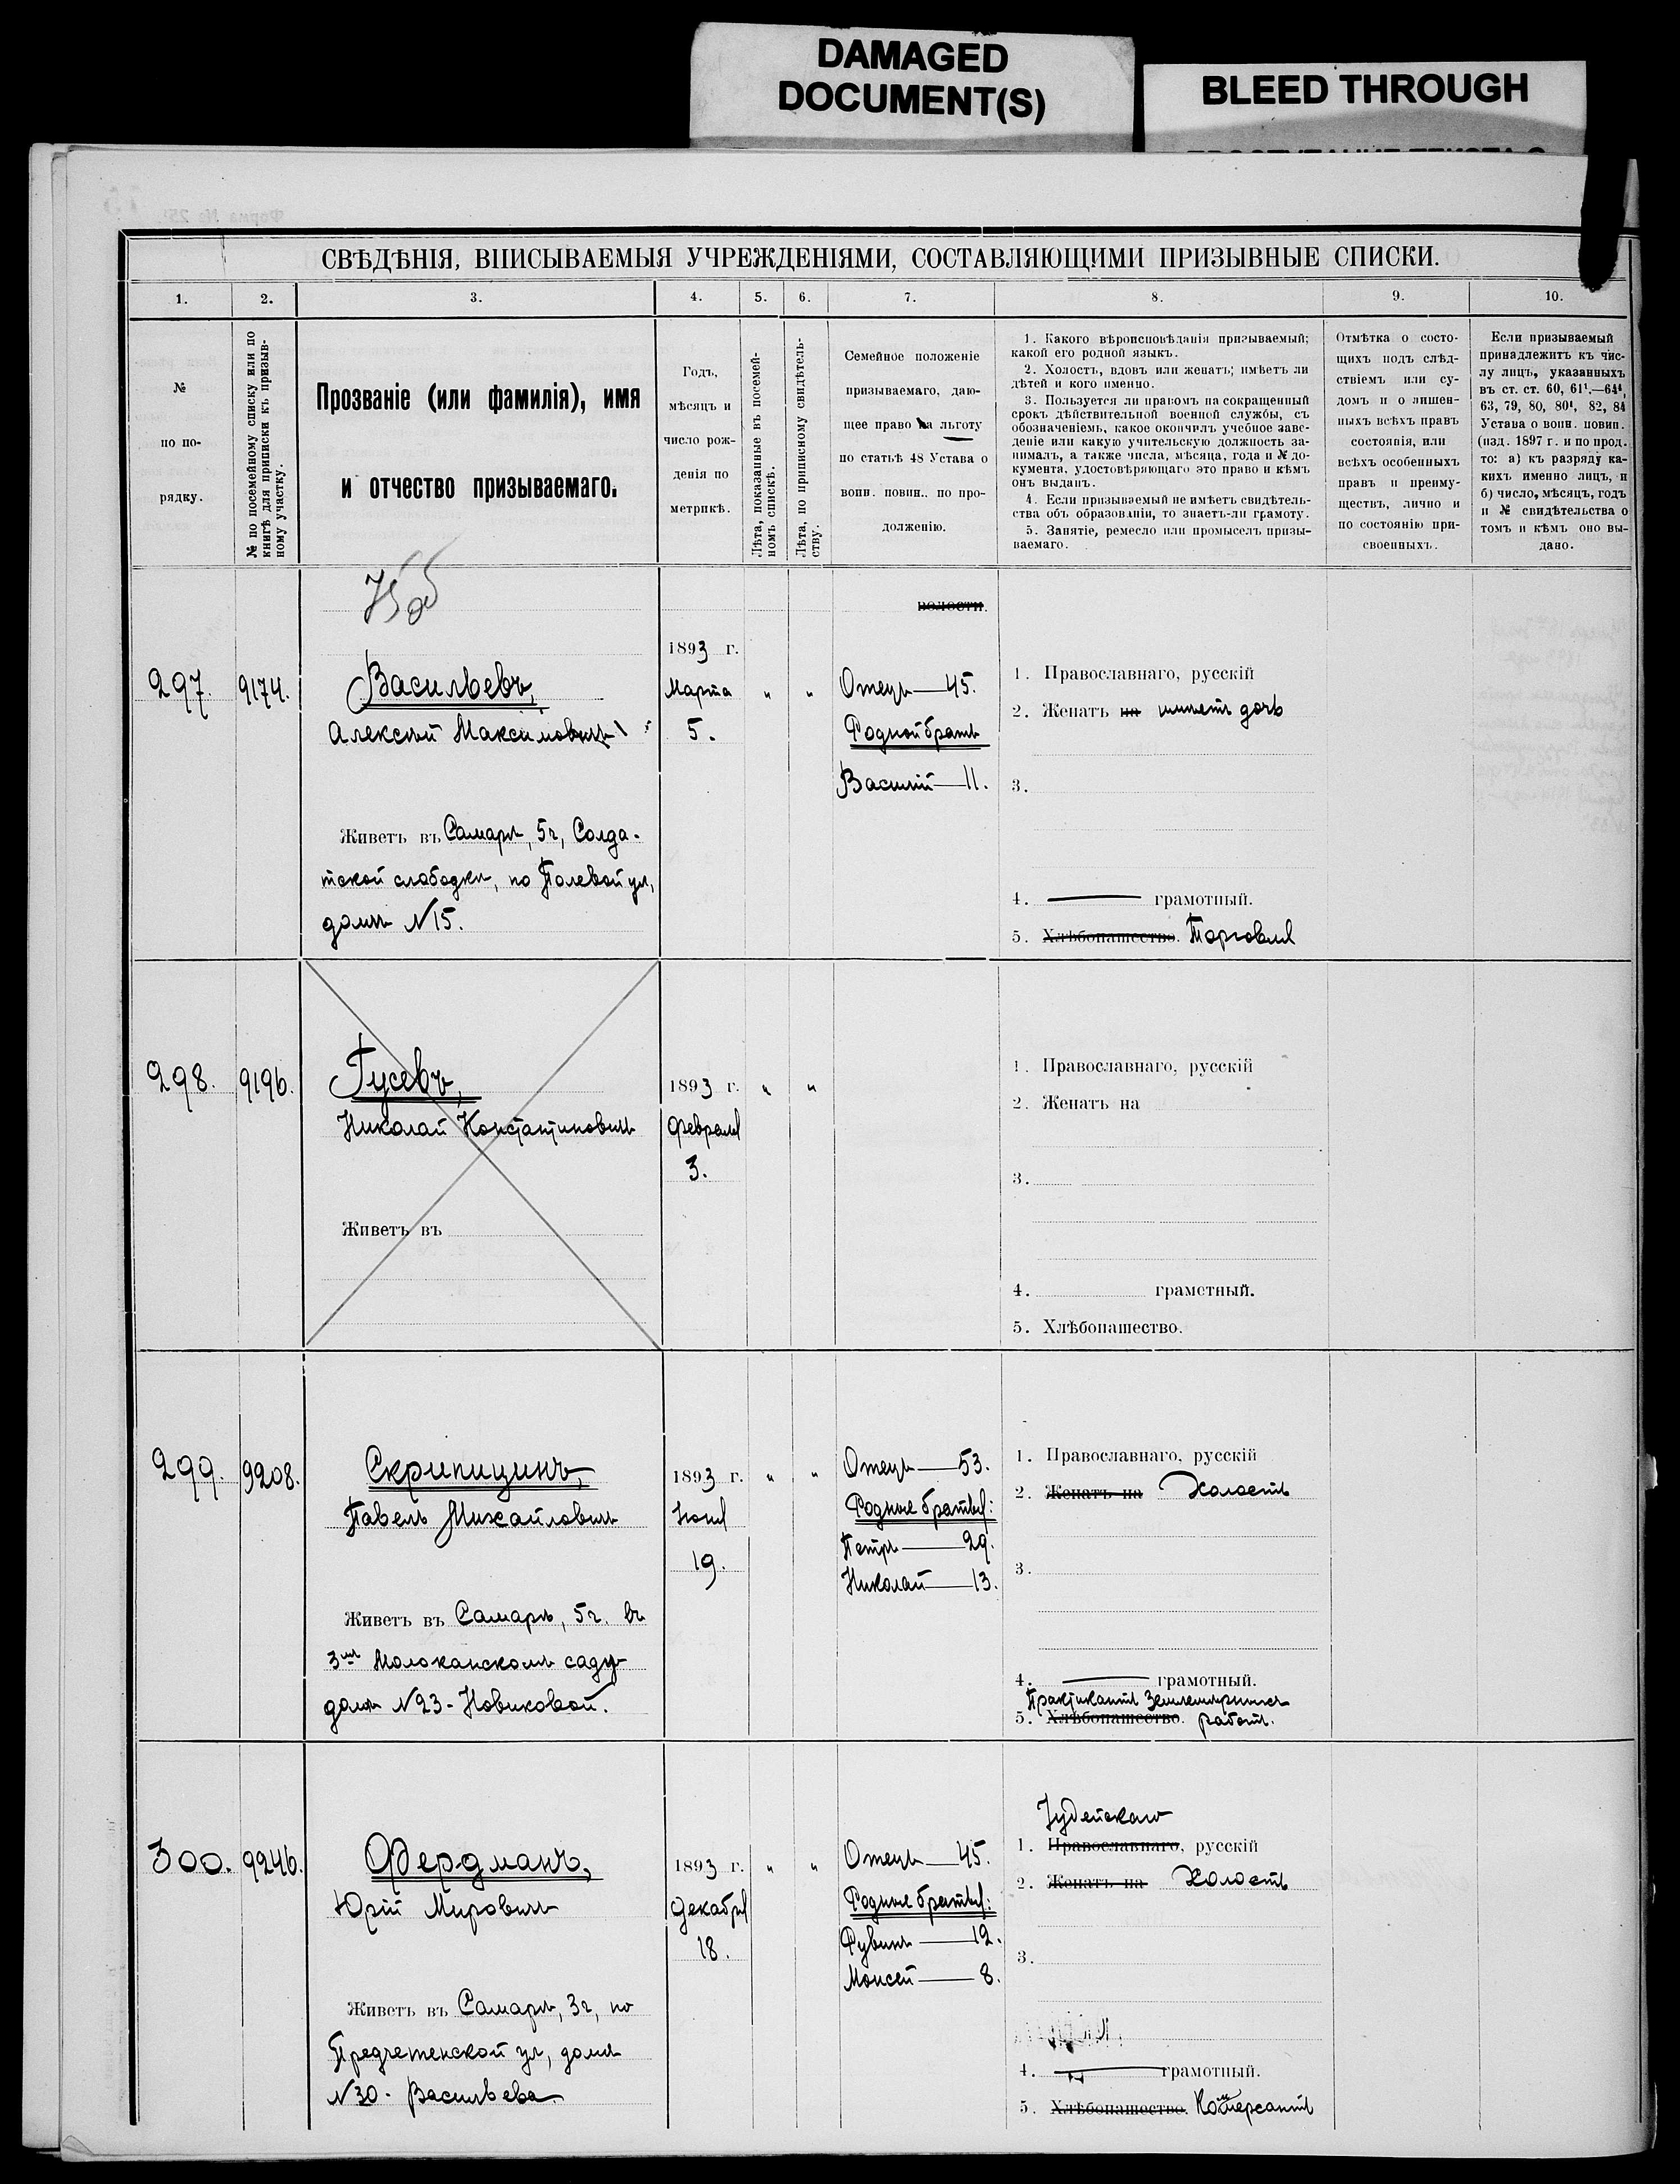 DAMAGED
DOCUMENT(S)
BLEED THROUGH
СВѢДѢНІЯ, ВПИСЫВАЕМЫЯ УЧРЕЖДЕНІЯМИ, СОСТАВЛЯЮЩИМИ ПРИЗЫВНЫЕ СПИСКИ.
1. 2. 3. 4. 5. 6. 7. 8. 9. 10.
№
по по-
рядку.
№ по посемейному списку или по
книгѣ для приписки къ призыв-
ному участку.
Прозваніе (или фамилія), имя
и отчество призываемаго.
Годъ,
мѣсяцъ и
число рож-
денія по
метрикѣ.
Лѣта, показанные въ посемей-
номъ спискѣ.
Лѣта, по приписному свидѣтель-
ству.
Семейное положеніе
призываемаго, даю-
щее право на льготу
по статьѣ 48 Устава о
воин. повин.. по про-
долженію.
1. Какого вѣроисповѣданія призываемый;
какой его родной языкъ.
2. Холостъ, вдовъ или женатъ; имѣетъ ли
дѣтей и кого именно.
3. Пользуется ли правомъ на сокращенный
срокъ дѣйствительной военной службы, съ
обозначеніемъ, какое окончилъ учебное заве-
деніе или какую учительскую должность за-
нималъ, а также числа, мѣсяца, года и № до-
кумента, удостовѣряющаго это право и кѣмъ
онъ выданъ.
4. Если призываемый не имѣетъ свидѣтель-
ства объ образованіи, то знаетъ-ли грамоту.
5. Занятіе, ремесло или промыселъ призы-
ваемаго.
Отмѣтка о состо-
щихъ подъ слѣд-
ствіемъ или су-
домъ и о лишен-
ныхъ всѣхъ правъ
состоянія, или
всѣхъ особенныхъ
правъ и преиму-
ществъ, лично и
по состоянію при-
своенныхъ.
Если призываемый
принадлежитъ къ чис-
лу лицъ, указанныхъ
въ ст. ст. 60, 61¹,—64⁴,
63, 79, 80, 80¹, 82, 84
Устава о воин. повин.
(изд. 1897 г. и по прод.
то: а) къ разряду ка-
кихъ именно лицъ, и
б) число, мѣсяцъ, годъ
и № свидѣтельства о
томъ и кѣмъ оно вы-
дано.
волости.
297. 9174.
Васильевъ,
Алексѣй Максимовичъ
Живетъ въ Самарѣ, 5ч, Солда-
тской слободки, по Полевой ул,
домъ №15.
1893 г.
Марта
5.
" "
Отецъ — 45.
Родной братъ
Василій — 11.
1. Православнаго, русскій
2. Женатъ на имѣетъ дочь
3.
4. — грамотный.
5. Хлѣбопашество. Торговля
298. 9196.
Гусевъ,
Николай Константиновичъ
Живетъ въ
1893 г.
Февраля
3.
" "
1. Православнаго, русскій
2. Женатъ на
3.
4. грамотный.
5. Хлѣбопашество.
299. 9208.
Скрипицинъ,
Павелъ Михайловичъ
Живетъ въ Самарѣ, 5ч. въ
3мъ Молоканскомъ саду
домъ №23 - Новиковой.
1893 г.
Іюня
19.
" "
Отецъ — 53.
Родные братья:
Петръ — 29.
Николай — 13.
1. Православнаго, русскій
2. Женатъ на Холостъ
3.
4. — грамотный.
Практикантъ Землемѣрныхъ
5. Хлѣбопашество. работъ.
300. 9246.
Фердманъ,
Юрій Мировичъ
Живетъ въ Самарѣ, 3ч, по
Предтеченской ул, домъ
№30 - Васильева
1893 г.
Декабря
18.
" "
Отецъ — 45.
Родные братья:
Рувинъ — 12.
Моисей — 8.
Іудейскаго
1. Православнаго, русскій
2. Женатъ на Холостъ
3.
4. — грамотный.
5. Хлѣбопашество. Комерсантъ